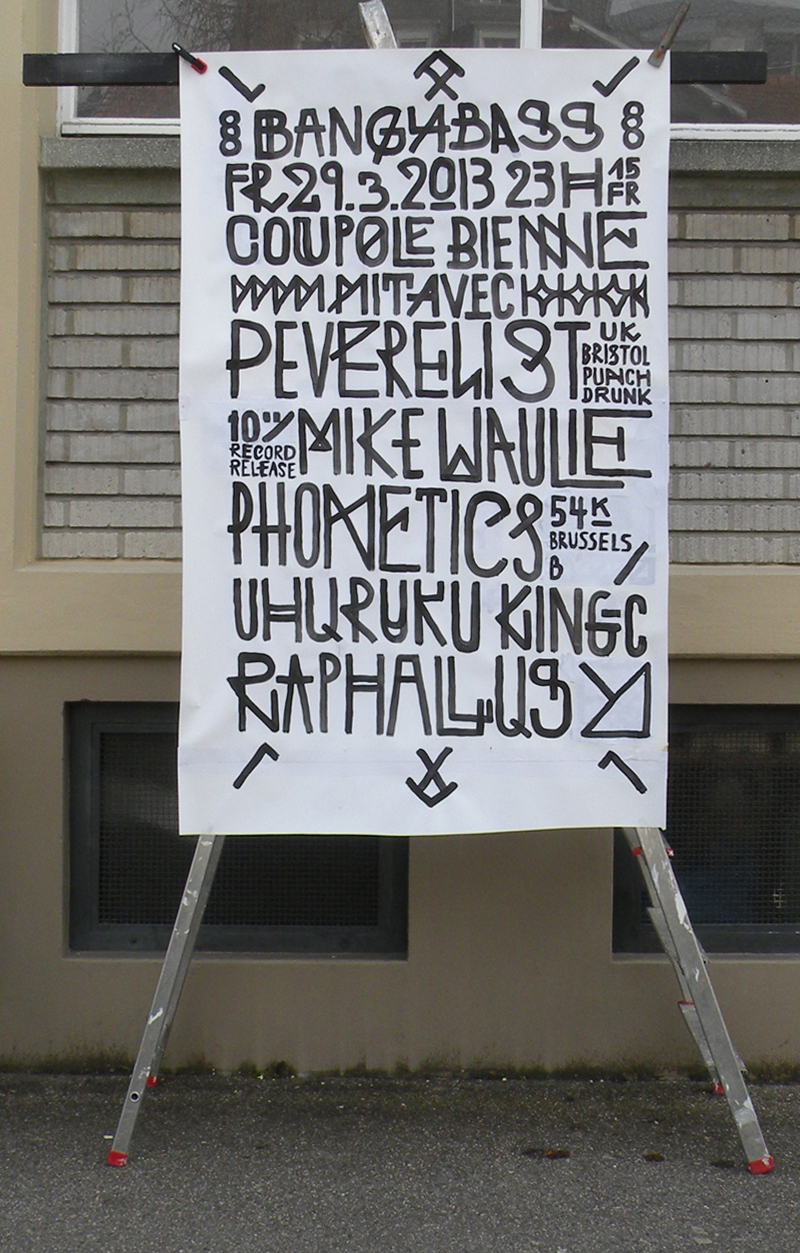 8 BANGYABASS 8
FR 29.3.2013 23H 15 FR
COUPOLE BIENNE
MIT AVEC
PEVERELIST UK BRISTOL PUNCH DRUNK
10"/ RECORD RELEASE MIKE WAULIE
PHONETICS 54K BRUSSELS B /
UHURUKU KINGC
RAPHALLUS